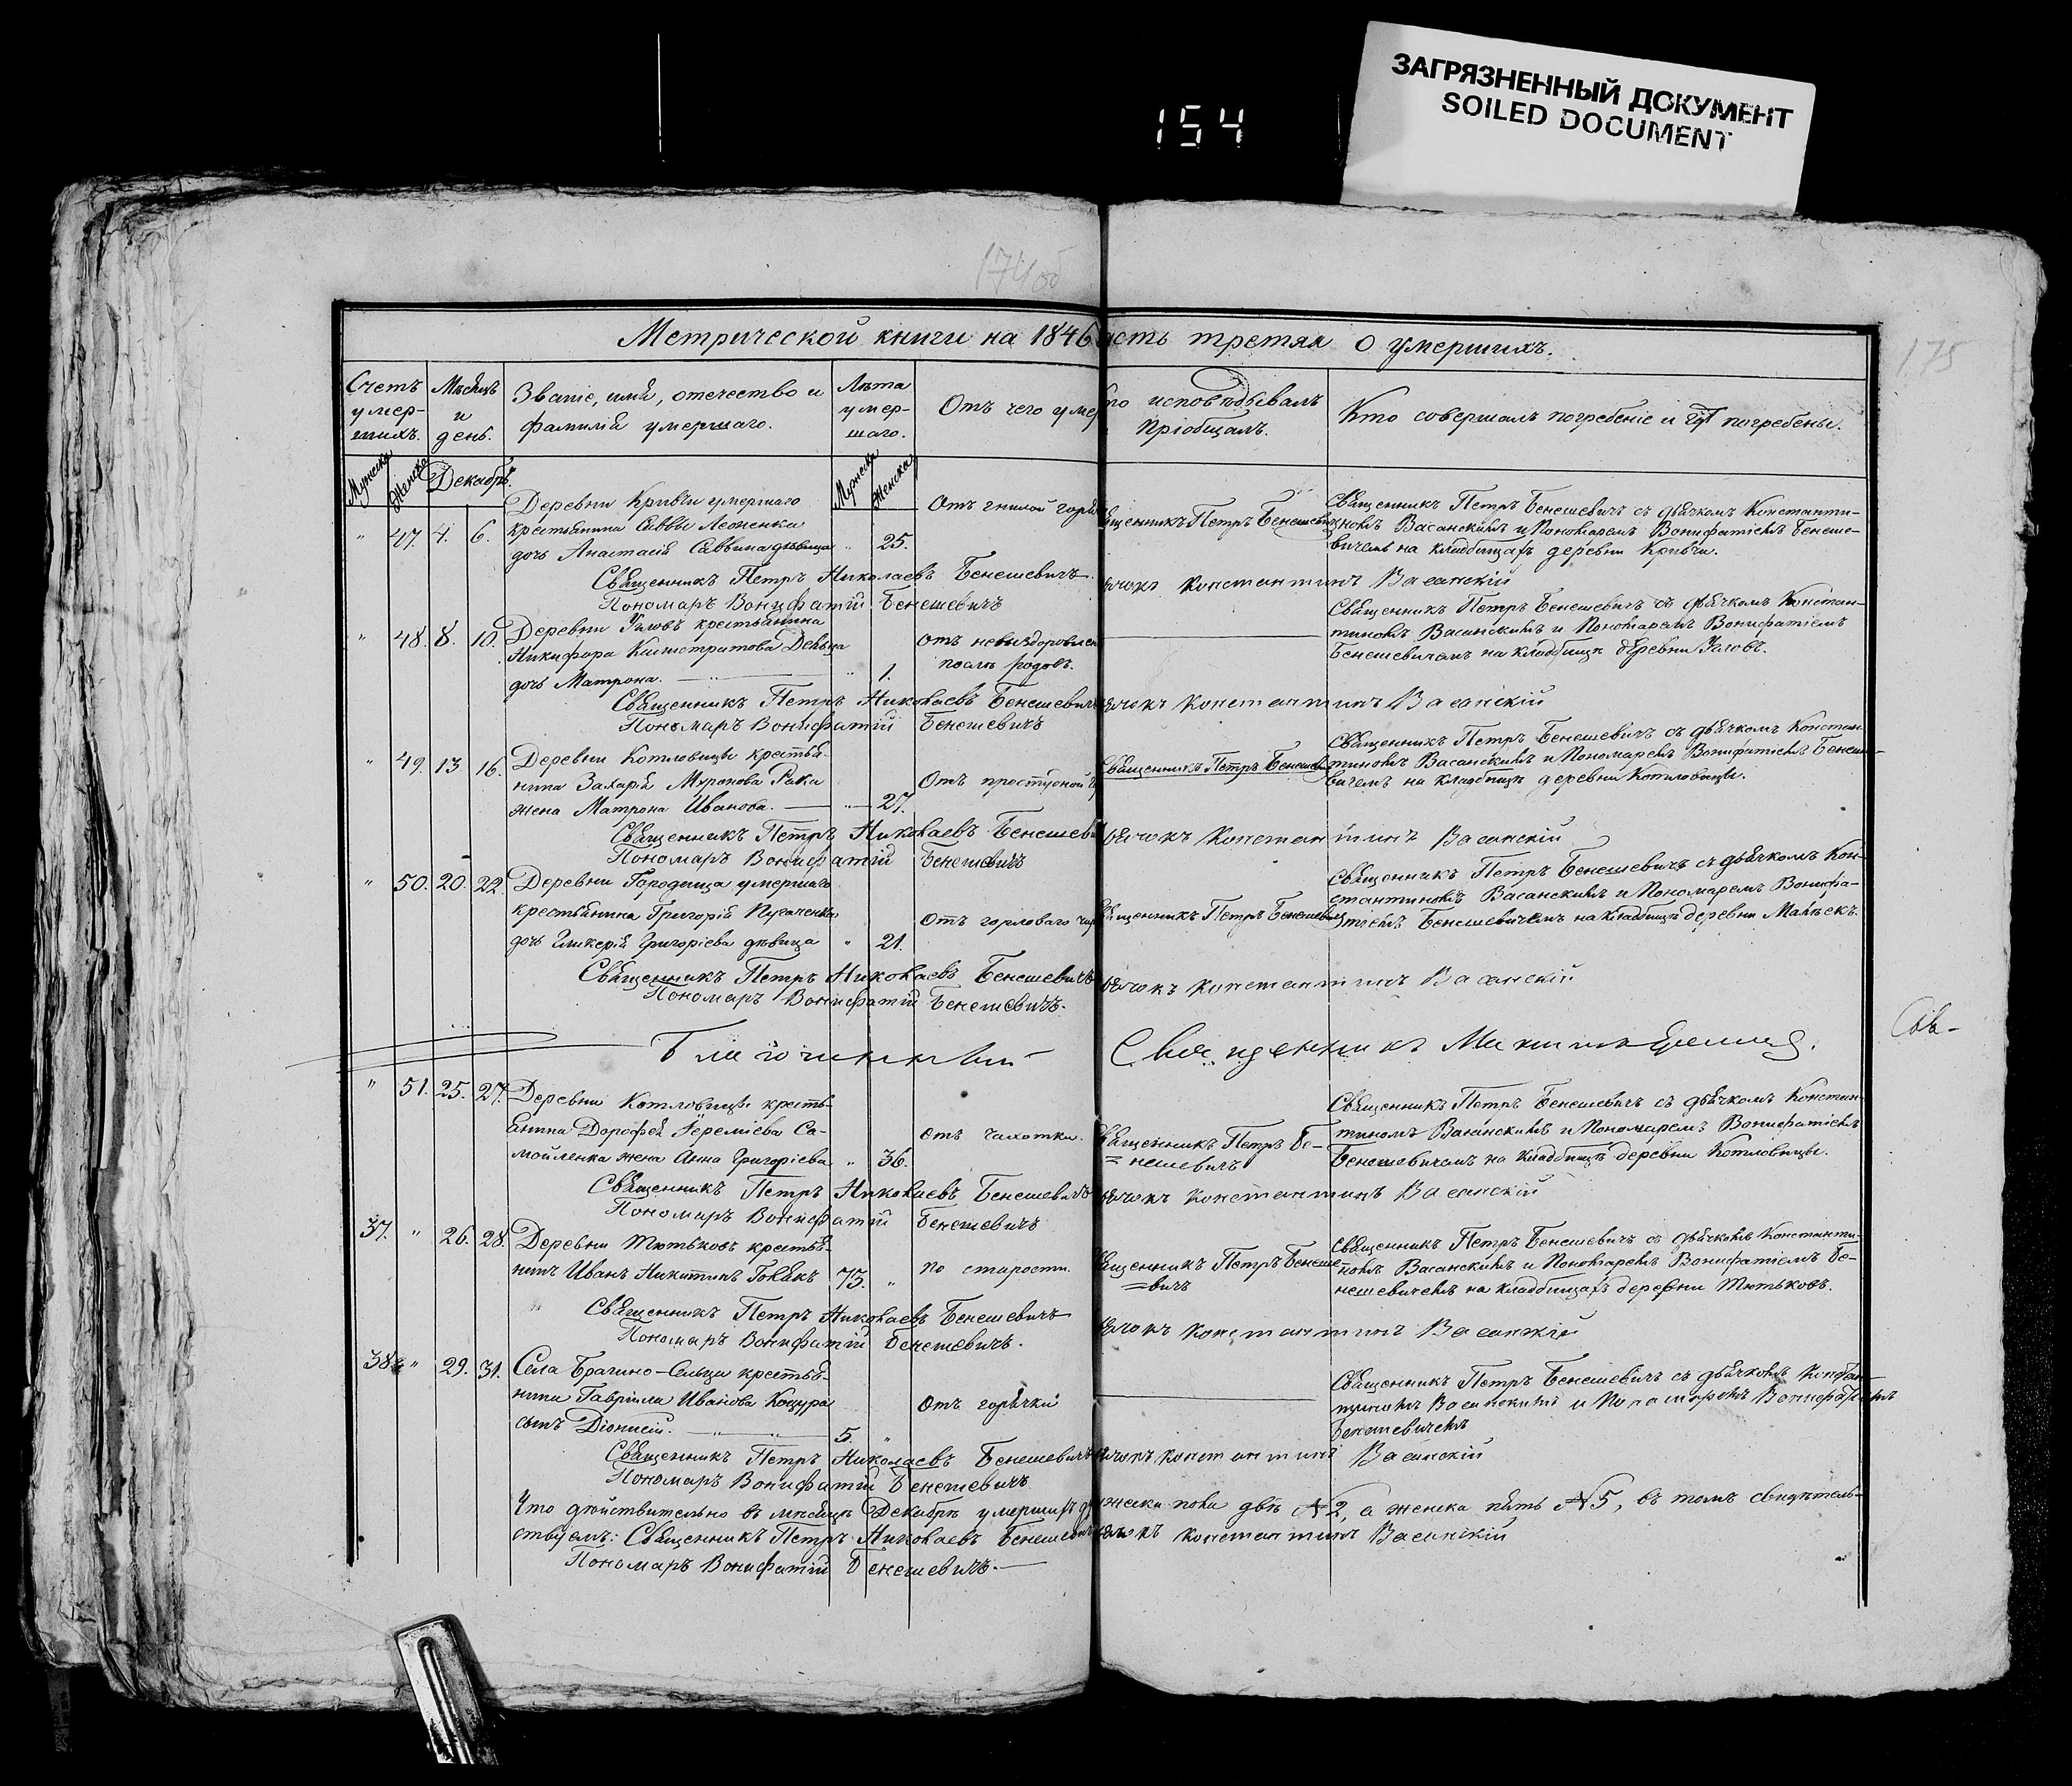 ЗАГРЯЗНЕННЫЙ ДОКУМЕНТ
SOILED DOCUMENT
154
174об
175
Метрической книги на 1846 часть третяя о умершихъ.
Счетъ умер-
шихъ.
Мѣсяцъ
и
день.
Званіе, имя, отечество и
фамилія умершаго.
Лѣта
умер-
шаго.
Отъ чего умер
то исповѣдывалъ
пріобщалъ.
Кто совершалъ погребеніе и гдѣ погребены.
Мужска
Женска
Декабрь
Мужска
Женска
" 47. 4. 6.
Деревни Кривчи умершаго
крестьянина Саввы Леоненка
дочь Анастасія Саввина дѣвица " 25.
Отъ гнилой горя
щенникъ Петръ Бенешевичъ
Священникъ Петръ Бенешевичъ съ дьячкомъ Константи-
номъ Васанскимъ и Пономаремъ Вонифатіемъ Бенеше-
вичемъ на кладбищахъ деревни Кривчи.
Священникъ Петръ Николаевъ Бенешевичъ
ячокъ Константинъ Васанскій
Пономарь Вонифатій Бенешевичъ
" 48. 8. 10.
Деревни Угловъ крестьянина
Никифора
дочь Матрона. " 1.
отъ невыздоровлен
посля родовъ.
Священникъ Петръ Бенешевичъ съ дьячкомъ Констан-
тиномъ Васанскимъ и Пономаремъ Вонифатіемъ
Бенешевичемъ на кладбищѣ деревни Угловъ.
Священникъ Петръ Николаевъ Бенешевичъ
ячокъ Константинъ Васанскій
Пономарь Вонифатій Бенешевичъ
" 49. 13 16.
Деревни Котловицы крестья-
нина Захарія Миронова Рака
жена Матрона Иванова. " 27.
Отъ простудной
Священникъ Петръ Бенешеви
Священникъ Петръ Бенешевичъ съ дьячкомъ Констан-
тиномъ Васанскимъ и Пономаремъ Вонифатіемъ Бенеше-
вичемъ на кладбищѣ деревни Котловицы.
Священникъ Петръ Николаевъ Бенешеви
ячокъ Константинъ Васанскій
Пономарь Вонифатій Бенешевичъ
" 50. 20. 22.
Деревни Городища умершаго
крестьянина Григорія Пугаченка
дочь Гликерія Григоріева дѣвица " 21.
Отъ горловаго
щенникъ Петръ Бенешевичъ
Священникъ Петръ Бенешевичъ съ дьячкомъ Кон-
стантиномъ Васанскимъ и Пономаремъ Вонифа-
тіемъ Бенешевичемъ на кладбищѣ деревни
Священникъ Петръ Николаевъ Бенешевичъ
ячокъ Константинъ Васанскій
Пономарь Вонифатій Бенешевичъ.
Благочинный
Священникъ
Свѣ-
" 51. 25. 27.
Деревни Котловицы кресть-
янина Дорофея Іереміева Са-
мойленка жена Анна Григоріева " 36.
отъ чахотки.
Священникъ Петръ Бе-
=нешевичъ
Священникъ Петръ Бенешевичъ съ дьячкомъ Констан-
тиномъ Васанскимъ и Пономаремъ Вонифатіемъ
Бенешевичемъ на кладбищѣ деревни Котловицы.
Священникъ Петръ Николаевъ Бенешевичъ
ячокъ Константинъ Васанскій
Пономарь Вонифатій Бенешевичъ
37. " 26. 28.
Деревни Тютьковъ крестья-
нинъ Иванъ Никитинъ 75. "
по старости.
щенникъ Петръ Бенеше-
=вичъ
Священникъ Петръ Бенешевичъ съ дьячкомъ Константи-
номъ Васанскимъ и Пономаремъ Вонифатіемъ Бе-
нешевичемъ на кладбищахъ деревни Тютьковъ.
" Священникъ Петръ Николаевъ Бенешевичъ
ячокъ Константинъ Васанскій
Пономарь Вонифатій Бенешевичъ.
38 " 29. 31.
Села Брагино-Сельца крестья-
нина Гавріила Иванова Коцура
сынъ Діонисій. 5. "
отъ горячки
Священникъ Петръ Бенешевичъ съ дьячкомъ Констан-
тиномъ Васанскимъ и Пономаремъ Вонифатіемъ
Бенешевичемъ
Священникъ Петръ Николаевъ Бенешевичъ
ячокъ Константинъ Васанскій
Пономарь Вонифатій Бенешевичъ
Что дѣйствительно въ мѣсяцѣ Декабрѣ умершихъ мужска пола двѣ №2, а женска пять №5, въ томъ свидѣтель-
ствуемъ: Священникъ Петръ Николаевъ Бенешевичъ ячокъ Константинъ Васанскій
Пономарь Вонифатій Бенешевичъ.